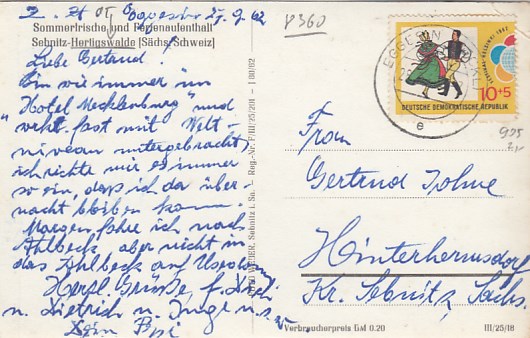 Eggesin 27.9.62
8360
Sommerfrische und Ferienaufenthalt
Sebnitz-Hertigswalde (Sächs. Schweiz)
Liebe Gertraud!
Bin wie immer im
"Hotel Mecklenburg" und
werde fast mit Welt-
niveau untergebracht,
ich richte mir es immer
so ein, daß ich da über-
nacht bleiben kann.
Morgen fahre ich nach
Ahlbeck aber nicht in
das Ahlbeck auf Usedom.
Herzl. Grüße f. Dich
u. Dietrich u. Inge u. s. w.
Dein
Sebnitz i. Sa. - Reg.-Nr. F/III/25/218 - I 80/62
EGGESIN
e
10+5
DEUTSCHE DEMOKRATISCHE REPUBLIK
Frau
Gertrud
Hinterhermsdorf
Kr. Sebnitz, Sachs.
Verbraucherpreis EM 0.20
III/25/18